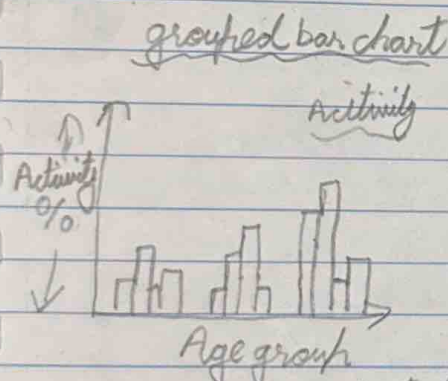 grouped bar chart
Acitivity
Activity
%
Age group